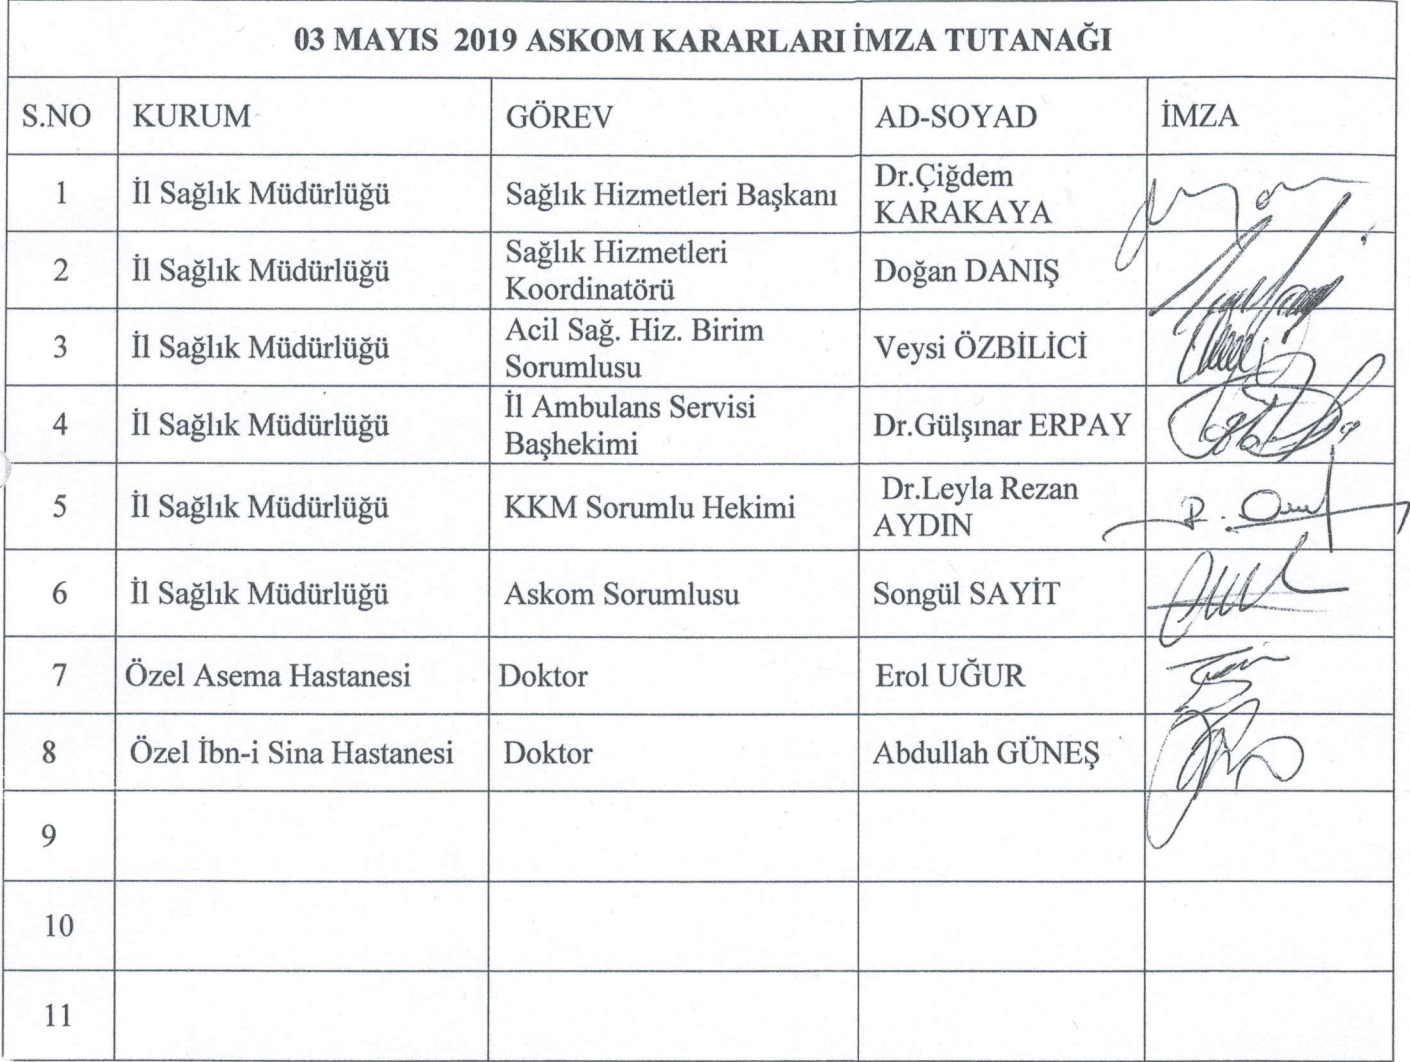 03 MAYIS 2019 ASKOM KARARLARI İMZA TUTANAĞI
S.NO KURUM GÖREV AD-SOYAD İMZA
1 İl Sağlık Müdürlüğü Sağlık Hizmetleri Başkanı Dr.Çiğdem
KARAKAYA
2 İl Sağlık Müdürlüğü Sağlık Hizmetleri
Koordinatörü Doğan DANIŞ
3 İl Sağlık Müdürlüğü Acil Sağ. Hiz. Birim
Sorumlusu Veysi ÖZBİLİCİ
4 İl Sağlık Müdürlüğü İl Ambulans Servisi
Başhekimi Dr.Gülşınar ERPAY
5 İl Sağlık Müdürlüğü KKM Sorumlu Hekimi Dr.Leyla Rezan
AYDIN
6 İl Sağlık Müdürlüğü Askom Sorumlusu Songül SAYİT
7 Özel Asema Hastanesi Doktor Erol UĞUR
8 Özel İbn-i Sina Hastanesi Doktor Abdullah GÜNEŞ
9
10
11